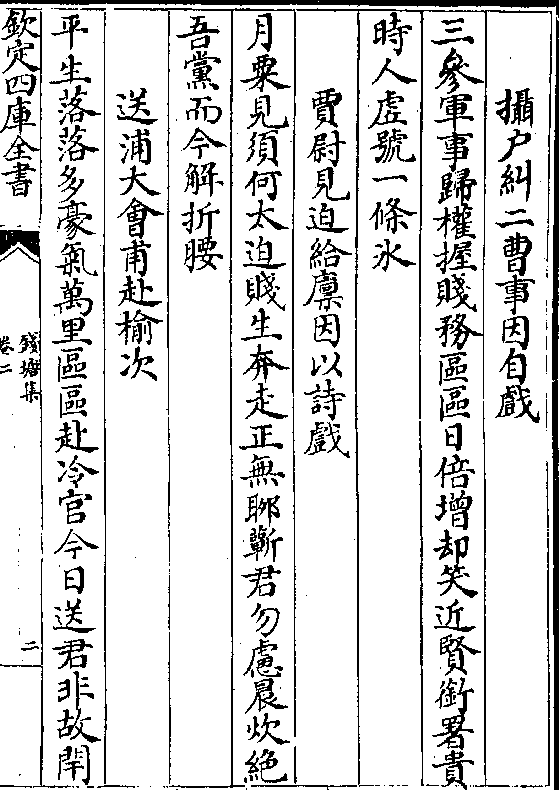 攝户糾二曹事因自戲
三參軍事歸權握賤務區區日倍增却笑近賢銜署貴
時人虚號一條氷
賈尉見迫給廪因以詩戲
月粟見須何太迫賤生奔走正無聊蘄君勿慮晨炊絶
吾黨而今解折腰
送浦大會甫赴榆次
平生落落多豪氣萬里區區赴冷官今日送君非故閈
欽定四庫全書
錢塘集
卷二
二